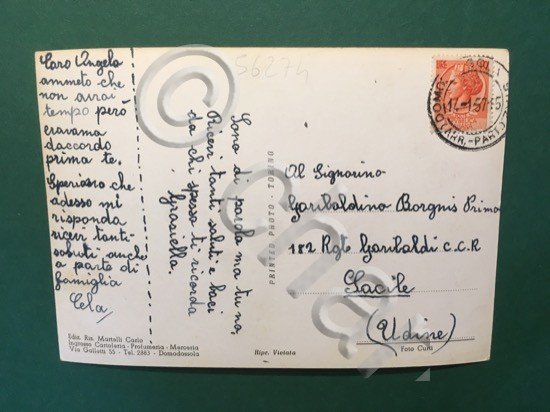 Caro Angelo
ammeto che
non avrai
tempo però
eravama
daccordo
prima te.
Speriamo che
adesso mi
risponda
ricevi tanti
saluti anche
a parte di
famiglia
Lela
56274
Sono di parola ma tu no,
Ricevi tanti saluti e baci
da chi spesso ti ricorda
Grasiella
PRINTED PHOTO - TORINO
Al Signorino
Garibaldino Borgnis Primo
182 Rgto Garibaldi C.C.R
Sacile
(Udine)
Ediz. Ris. Martelli Carlo
Ingrosso Cartoleria - Profumeria - Merceria
Via Galletti 55 - Tel. 2883 - Domodossola
Ripr. Vietata
Foto Cuia